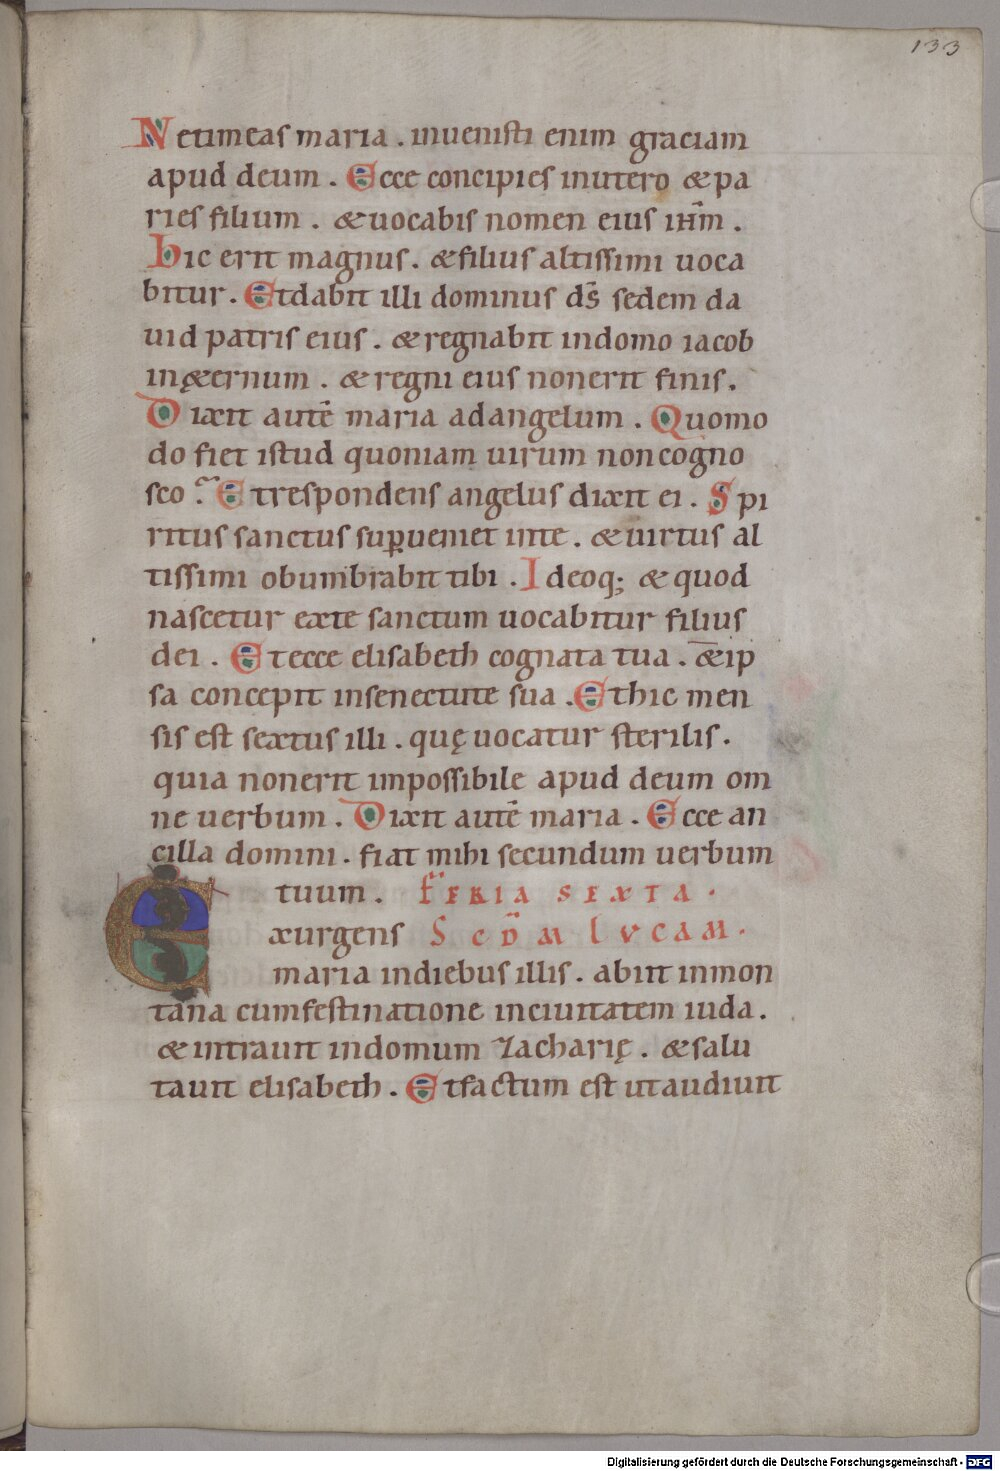 133
Ne timeas maria . inuenisti enim graciam
apud deum . Ecce concipies inutero & pa
ries filium . & uocabis nomen eius ih̄m .
hic erit magnus . & filius altissimi uoca
bitur . Et dabit illi dominus d̄s sedem da
uid patris eius . & regnabit indomo iacob
inę&ernum . & regni eius nonerit finis .
Dixit autē maria adangelum . Quomo
do fiet istud quoniam uirum noncogno
sco ? Et respondens angelus dixit ei . Spi
ritus sanctus suꝑueniet inte . & uirtus al
tissimi obumbrabit tibi . Ideoq; & quod
nascetur exte sanctum uocabitur filius
dei . Et ecce elisabeth cognata tua . & ip
sa concepit insenectute sua . Et hic men
sis est sextus illi . quę uocatur sterilis .
quia nonerit impossibile apud deum om
ne uerbum . Dixit autē maria . Ecce an
cilla domini . fiat mihi secundum uerbum
tuum . FERIA SEXTA .
Exurgens SCD̄M LVCAM .
maria indiebus illis . abiit inmon
tana cumfestinatione inciuitatem iuda .
& intrauit indomum Zacharię . & salu
tauit elisabeth . Et factum est utaudiuit
Digitalisierung gefördert durch die Deutsche Forschungsgemeinschaft - DFG